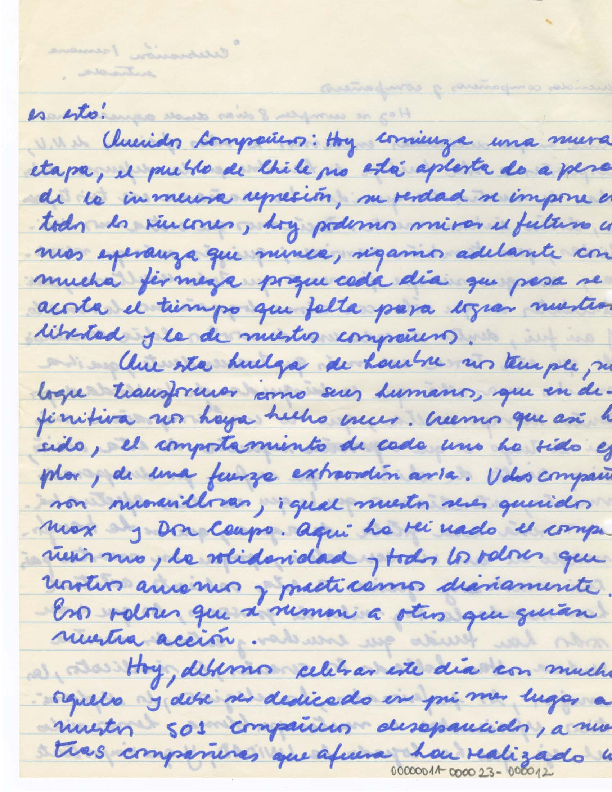 es esto!
Queridos Compañeros: Hoy comienza una nueva
etapa, el pueblo de Chile no está aplastado a pesar
de la inmensa represión, su verdad se impone
todos los rincones, hoy podemos mirar el futuro
mas esperanza que nunca, sigamos adelante con
mucha firmeza porque cada día que pasa se
acorta el tiempo que falta para lograr nuestra
libertad y la de nuestros compañeros.
Que esta huelga de hambre nos temple, n
logre transformar como seres humanos, que en de-
finitiva nos haya hecho crecer. Creemos que así h
sido, el comportamiento de cada uno ha sido ej
plar, de una fuerza extraordinaria. Udes compañ
son maravillosas, igual nuestros seres queridos
max y Don Campo. Aquí ha reinado el compa-
ñerismo, la solidaridad y todos los valores que
nosotros amamos y practicamos diariamente.
Esos valores que se suman a otros que guían
nuestra acción.
Hoy, debemos celebrar este día con mucho
orgullo y debe ser dedicado en primer lugar a
nuestros 501 compañeros desaparecidos, a nues
tras compañeras que afuera han realizado u
00000014-000023-000012